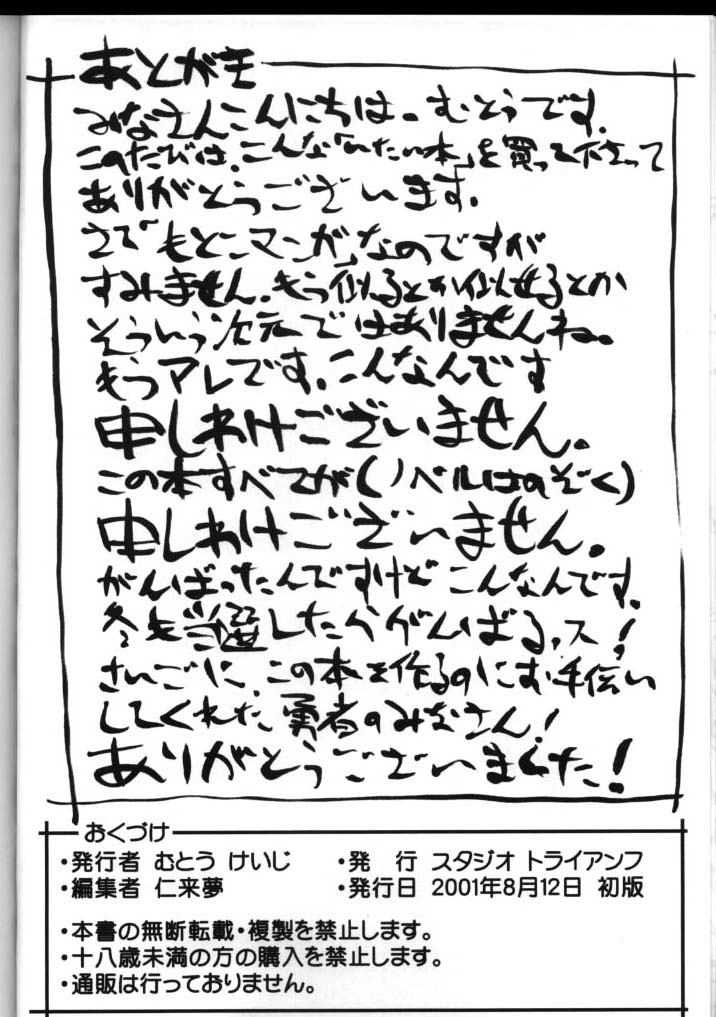 あとがき
みなさんこんにちは。むとうです。
このたびは、こんな「いたい本」を買って下さって
ありがとうございます。
さて「もとこマンガ」なのですが
すみません。もう似るとか似せるとか
そういう次元ではありませんね。
もうマレです。こんなんです
申しわけございません。
この本すべてが(ノベルはのぞく)
申しわけございません。
がんばったんですけど こんなんです。
冬も当選したらがんばるッス!
さいごに、この本を作るのにお手伝い
してくれた、勇者のみなさん!
ありがとうございました!
おくづけ
・発行者 むとう けいじ ・発 行 スタジオ トライアンフ
・編集者 仁来夢 ・発行日 2001年8月12日 初版
・本書の無断転載・複製を禁止します。
・十八歳未満の方の購入を禁止します。
・通販は行っておりません。